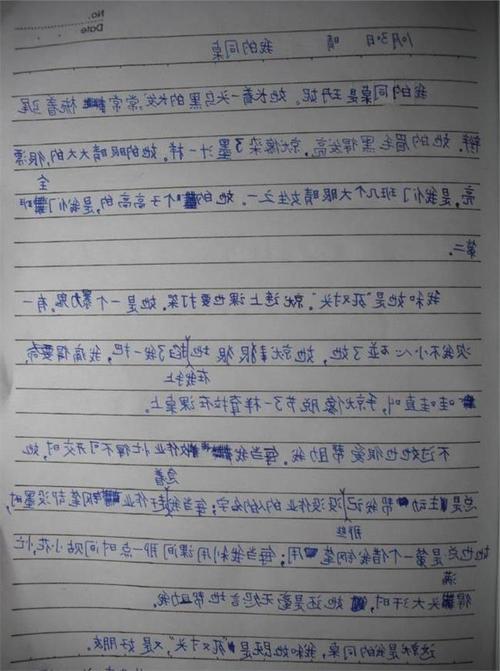 No.
Date
10月30日 晴
我的同桌
我的同桌是王丹妮。她长着一头乌黑的长发,常常梳着马尾
辫。她的眉毛黑得发亮,就像染了墨汁一样。她的眼睛大大的,很漂
亮,是我们班几个大眼睛女生之一。她的个子高高的,是我们全班
第二。
我和她是“死对头”,就连上课也要打架。她是一个暴力鬼。有一
次我不小心碰了她,她就狠狠地在我手上掐了我一把,我痛得要命,
哇哇直叫,手就像脱节了一样耷拉在课桌上。
不过她也很爱帮助我。每当我作业忙得不可开交时,她
总是主动帮我记那些没交作业的人的名字;每当我急着赶作业钢笔却没墨时,
她也总是第一个借我钢笔用;每当我利用课间那一点时间贴小花,忙
得满头大汗时,她还是毫无怨言地帮助我。
这就是我的同桌,我和她既是“死对头”,又是好朋友。